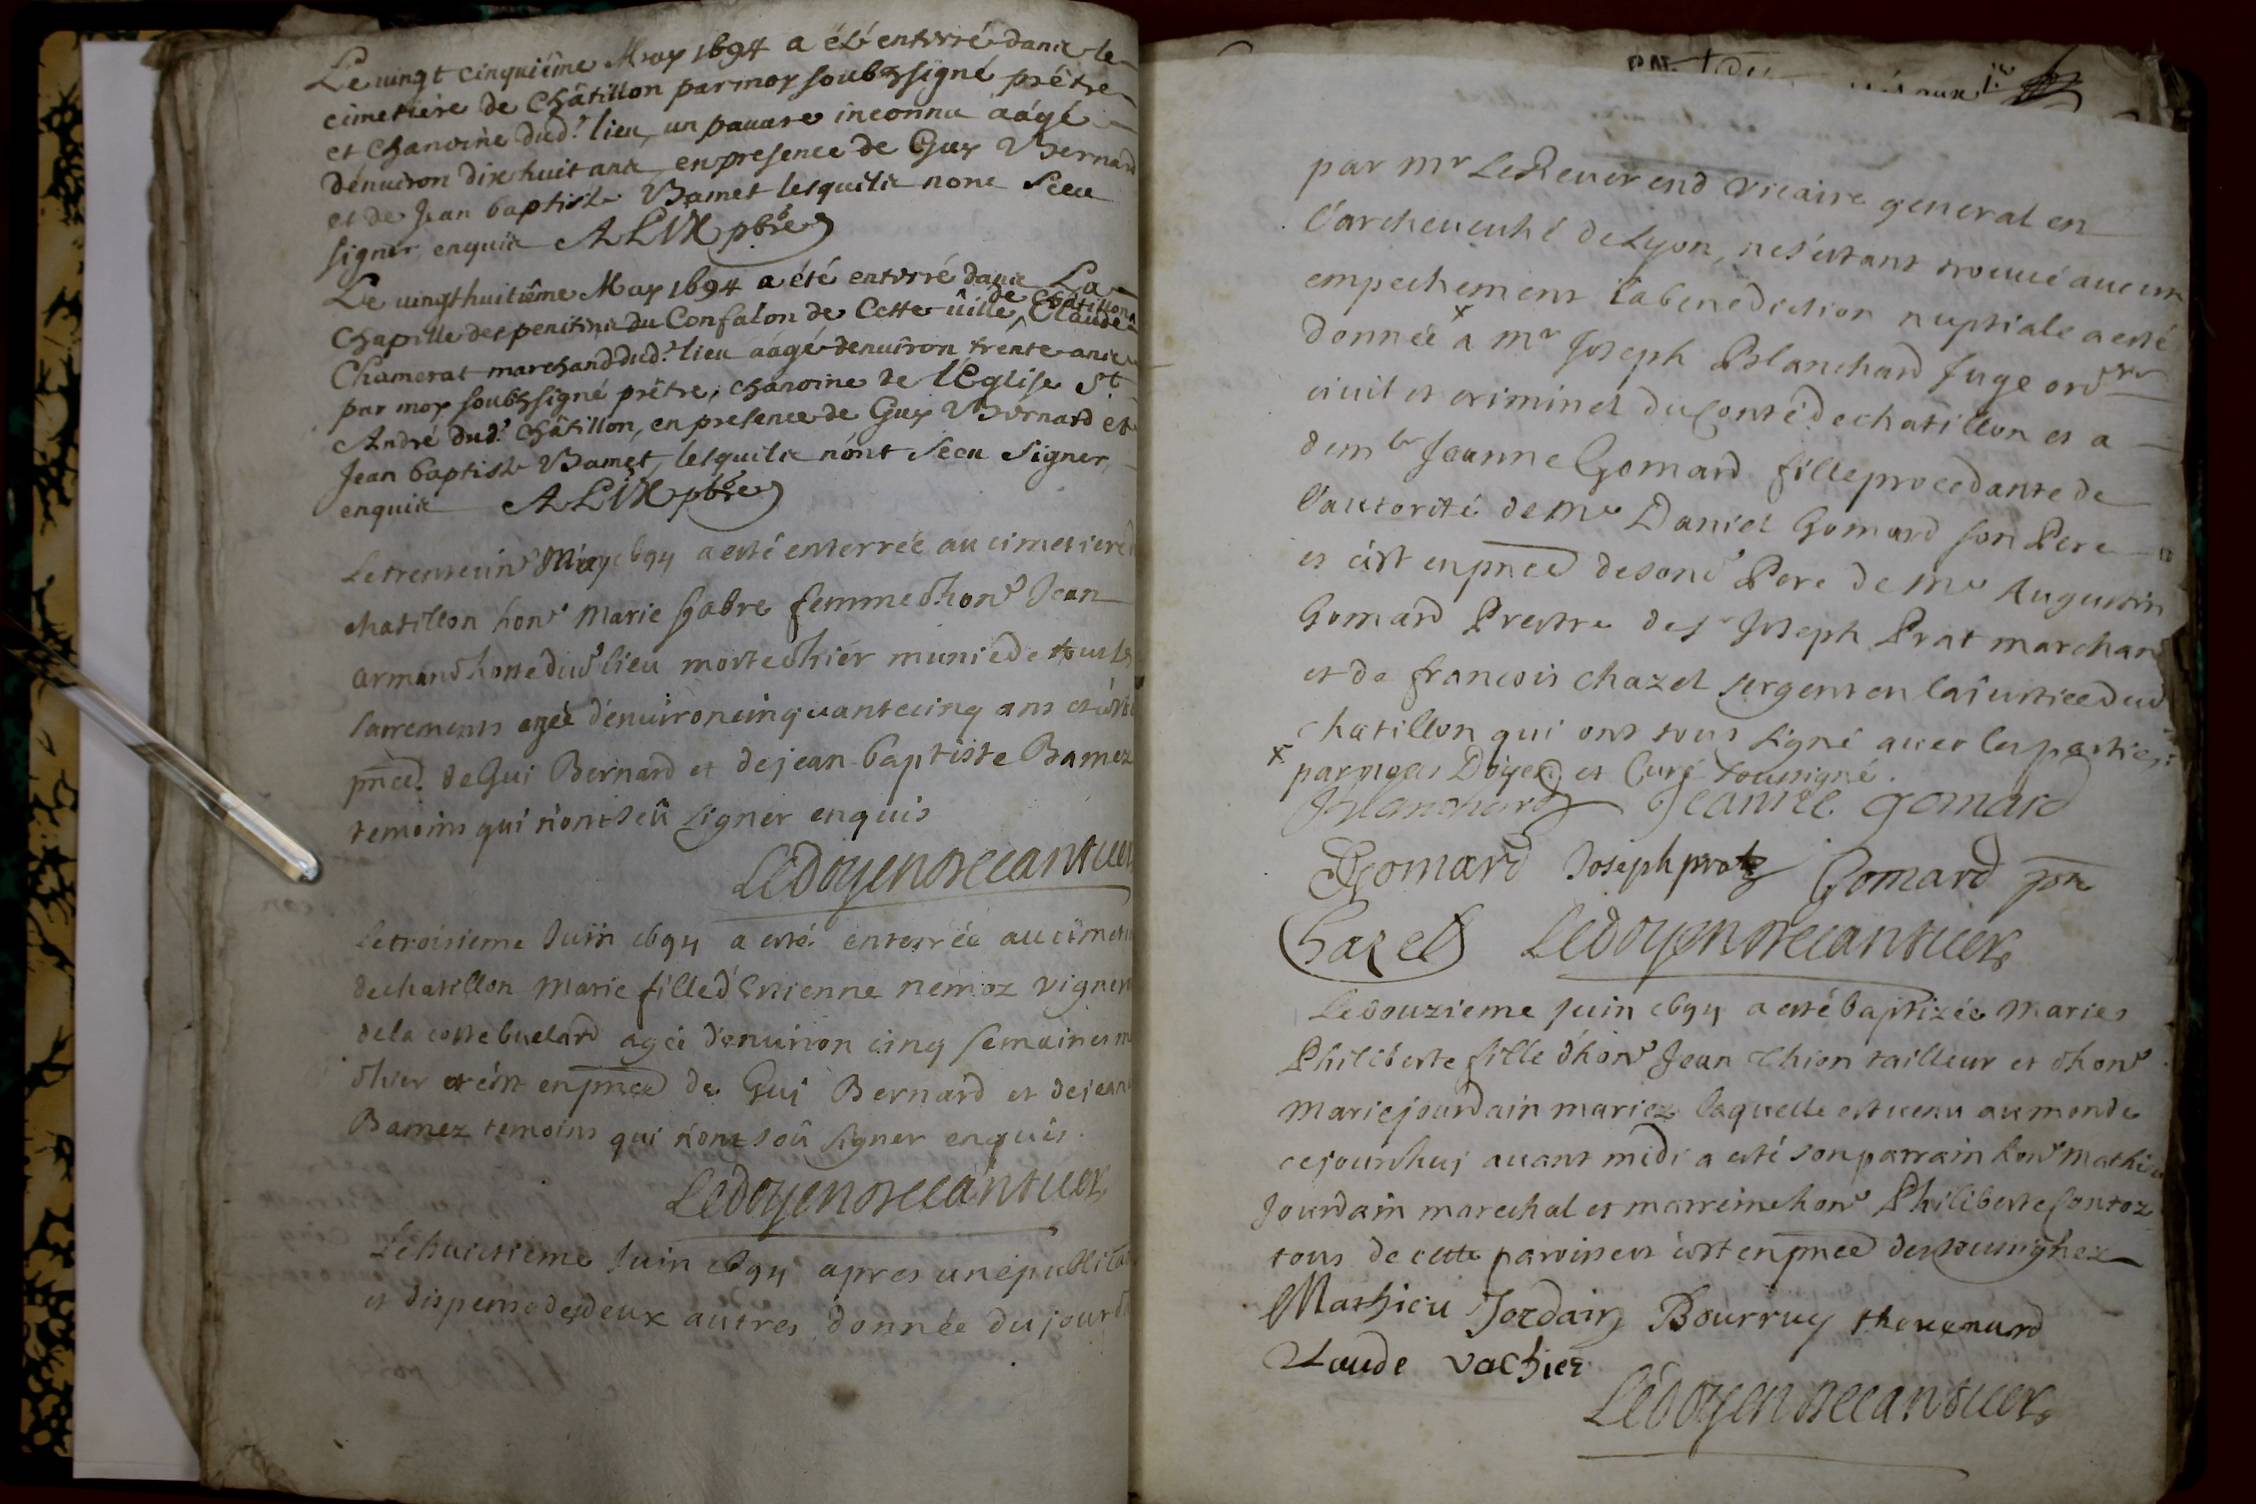 Le uingt cinquiême May 1694 a été enterré danz le
cimetiére de Châtillon par moy soubzsigné prêtre
et chanoine dud.t lieu, un pauure inconnu aâgé
dénuiron dix huit anz en presence de Guy Bernard
et de Jean baptiste Bamet lesquilz nonz sceu
signer enquiz ALIX pbre
Le uingthuitiême May 1694 a été enterré danz La
Chapelle des penitenz du Confalon de Cette uille, de Châtillon, Claude
Chamerat marchand dud.t lieu aâgé denuiron trente anz
par moy soubzsigné prêtre, chanoine de lÉglise St
André dud.t Châtillon, en presence de Guy Bernard et
Jean baptiste Bamet, lésquilz nónt sceu signer,
enquiz ALIX pbre
Le trente un May 1694 a esté enterrée au cimetiere d
chatillon hon. Marie fabre femme d'hon. Jean
armand hoste dud lieu morte d'hier munie de tous les
sacrements agée d'enuiron cinquante cinq ans et c'est
pnce de Gui Bernard et de jean baptiste Bamez
temoins qui n'ont seû signer enquis
Le doyen Trecantuers
Le troisieme Juin 1694 a esté enterrée au cimeti
de chatillon Marie fille d'Estienne nemoz vigner
de la coste buelard agée d'enuiron cinq semaines m
d'hier et c'est en pnce de Gui Bernard et de jean
Bamez temoins qui n'ont soû signer enquis.
Le doyen Trecantuers
Le huictieme Juin 1694 apres une publicat
et dispense des deux autres donnée du jour d
par Mr Le Reuerend vicaire general en
l'archeuesché de Lyon, ne s'estant trouué aucun
empechement la benediction nuptiale a esté
donnée x a Mr Joseph Blanchard Juge ord.re
ciuil et criminel du Conté de chatillon et a
dem.lle Jeanne Gomard fille procedante de
l'autorité de Me Daniel Gomard son Pere
et c'est en pnce de sond Pere de Me Augustin
Gomard Prestre de Sr Joseph Prat marchand
et de francois chazel sergent en la justice dud
chatillon qui ont tous signé auec les parties.
x par nous Doyen et Curé soussigné.
JBlanchard Jeanne gomard
DGomard Joseph prat Gomard pbre
Chazel Le doyen Trecantuers
Le douzieme Juin 1694 a esté baptizée Marie
Philiberte fille d'hon. Jean Thion tailleur et d'hon.
Marie jourdain mariez laquelle est uenu au monde
ce jourd'huj auant midi a esté son parrain hon. Mathieu
Jourdain marechal et marreine hon. Philiberte Contoz
tous de cette parroisse et c'est en pnce des soussignez
Mathieu Jordain Bourruy theuenard
Claude vachier
Le doyen Trecantuers